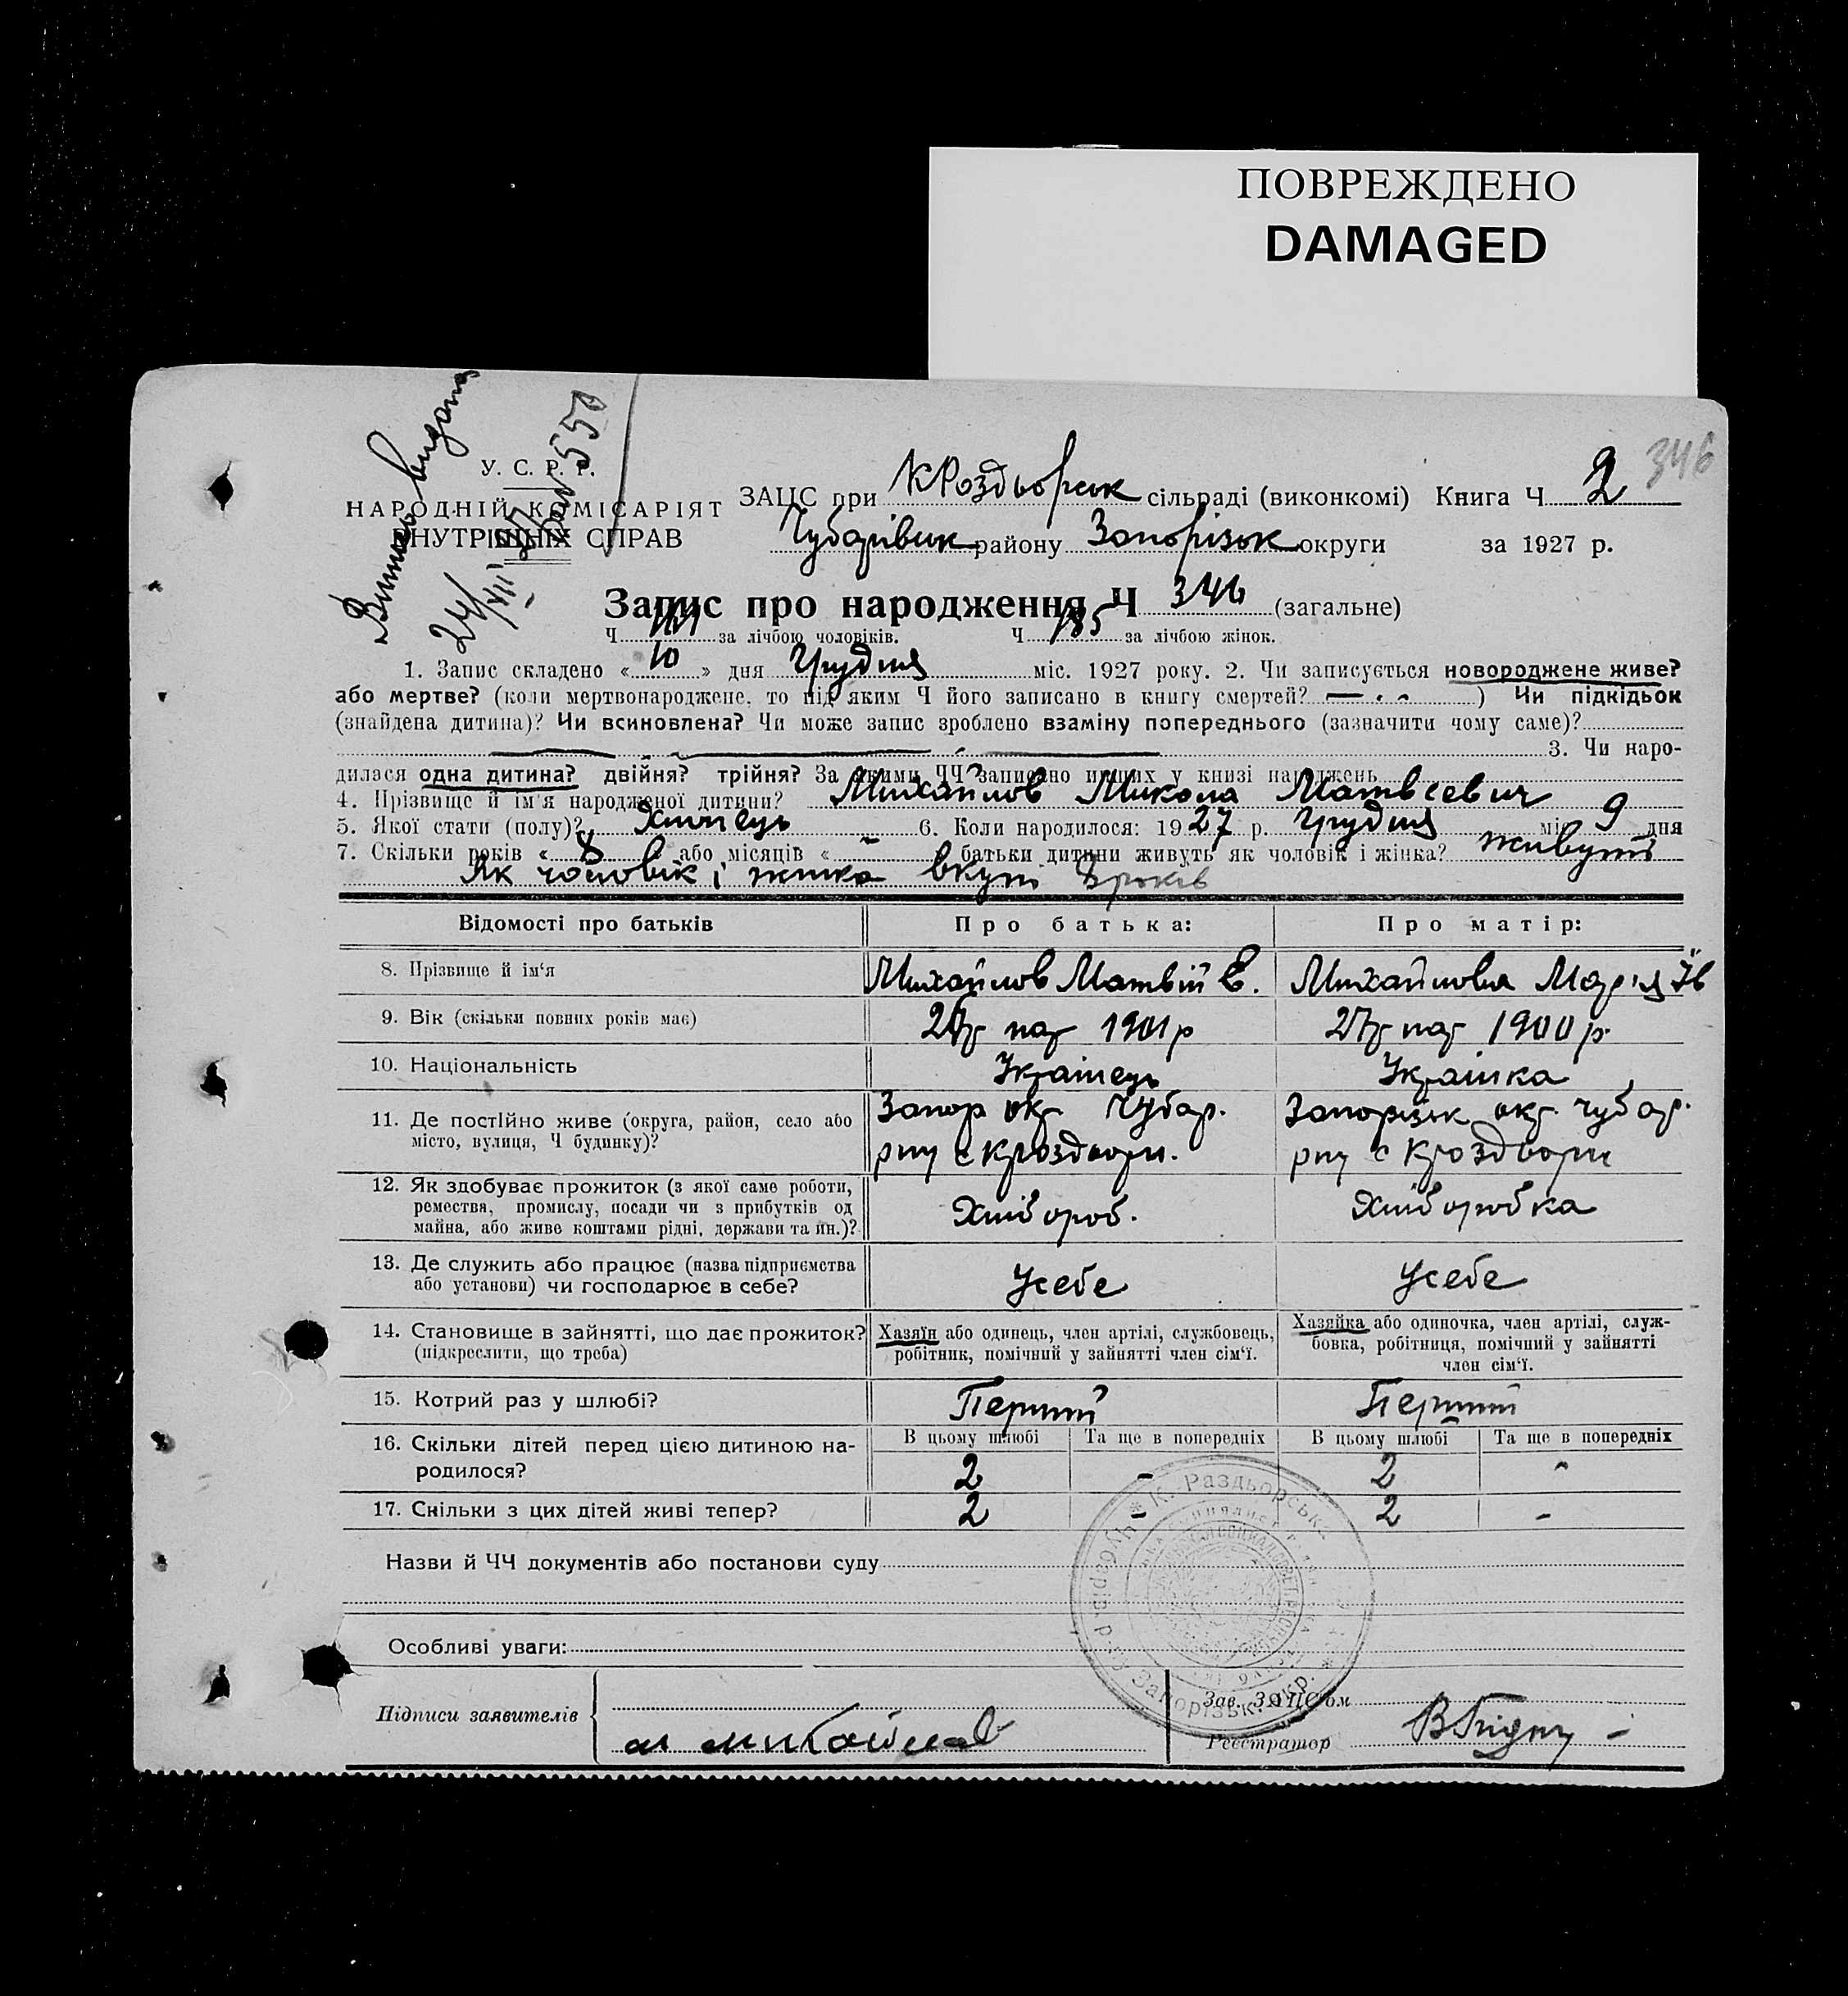 ПОВРЕЖДЕНО
DAMAGED
346
Витяг видано
24/VII
550
У. С. Р. Р.
НАРОДНІЙ КОМІСАРІЯТ
ВНУТРІШНІХ СПРАВ
ЗАЦС при КРоздьорськ сільраді (виконкомі) Книга Ч 2
Чубарівськ району Запорізьк округи за 1927 р.
Запис про народження Ч 346 (загальне)
Ч 161 за лічбою чоловіків. Ч 185 за лічбою жінок.
1. Запис складено « 10 » дня Грудня міс. 1927 року. 2. Чи записується новороджене живе?
або мертве? (коли мертвонароджене, то під яким Ч його записано в книгу смертей? ) Чи підкідьок
(знайдена дитина)? Чи всиновлена? Чи може запис зроблено взаміну попереднього (зазначити чому саме)?
3. Чи наро-
дилася одна дитина? двійня? трійня? За якими ЧЧ записано инших у книзі народжень
4. Прізвище й ім'я народженої дитини? Михайлов Микола Матвеевич
5. Якої стати (полу)? Хлопець 6. Коли народилося: 1927 р. Грудня міс 9 дня
7. Скільки років « 8 » або місяців « – » батьки дитини живуть як чоловік і жінка? живуть
Як чоловік і жінка вкупі 8 років
Відомості про батьків Про батька: Про матір:
8. Прізвище й ім'я Михайлов Матвій Е. Михайлова Марія Ів
9. Вік (скільки повних років має) 26р нар 1901 р 27р нар 1900 р
10. Національність Українець Українка
11. Де постійно живе (округа, район, село або Запор окр Чубар. Запорізьк окр. Чубар.
місто, вулиця, Ч будинку)? рну с Кроздьори. рну с Кроздори
12. Як здобуває прожиток (з якої саме роботи,
ремества, промислу, посади чи з прибутків од Хлібороб. Хліборобка
майна, або живе коштами рідні, держави та ин.)?
13. Де служить або працює (назва підприємства
або установи) чи господарює в себе? Усебе Усебе
14. Становище в зайнятті, що дає прожиток? Хазяїн або одинець, член артілі, службовець, Хазяйка або одиночка, член артілі, служ-
(підкреслити, що треба) робітник, помічний у зайнятті член сім'ї. бовка, робітниця, помічний у зайнятті
член сім'ї.
15. Котрий раз у шлюбі? Перший Перший
16. Скільки дітей перед цією дитиною на- В цьому шлюбі Та ще в попередніх В цьому шлюбі Та ще в попередніх
родилося? 2 - 2 -
17. Скільки з цих дітей живі тепер? 2 - 2 -
Назви й ЧЧ документів або постанови суду
Особливі уваги:
К. Раздьорська
Чубарів. р-ну Запорізьк. Окр.
Підписи заявителів м михайлов
Зав. ЗАЦС'ом
Реєстратор